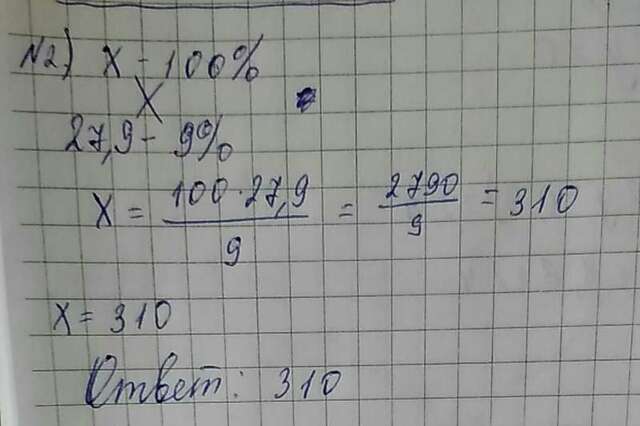 №2) х - 100%
27,9 - 9%
х = 100 · 27,9 / 9 = 2790 / 9 = 310
х = 310
Ответ: 310